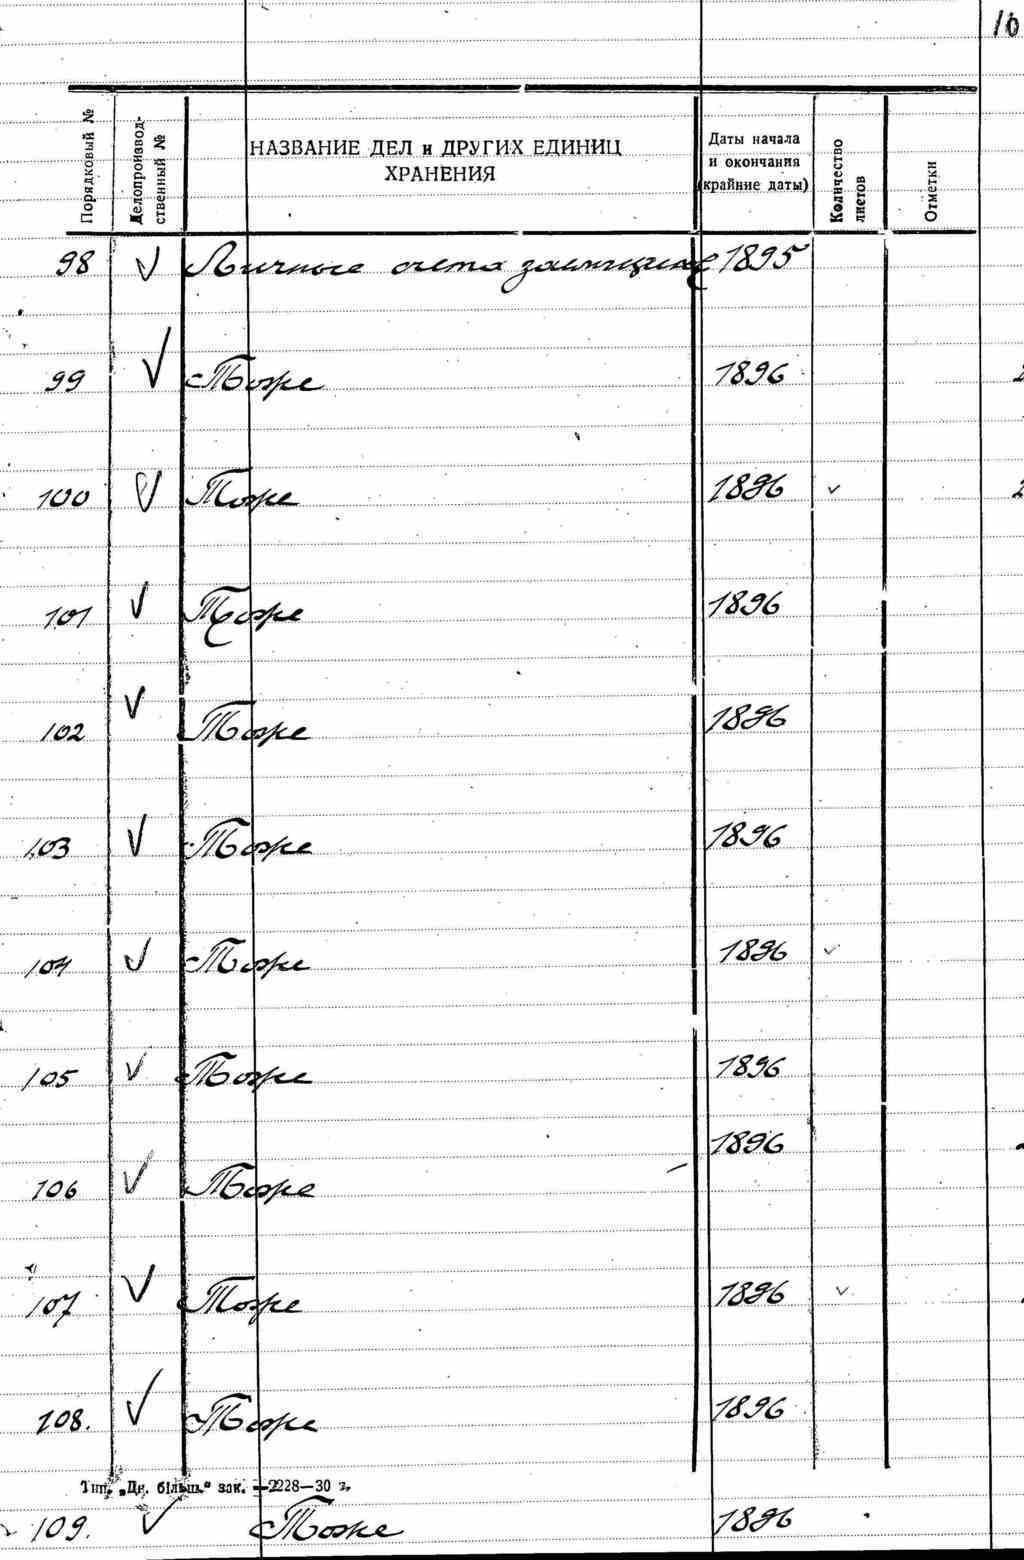 10
Порядковый №
Делопроизвод-
ственный №
НАЗВАНИЕ ДЕЛ и ДРУГИХ ЕДИНИЦ
ХРАНЕНИЯ
Даты начала
и окончания
(крайние даты)
Количество
листов
Отметки
98 √ Личные счета заемщиков 1895
99 √ Тоже 1896
100 √ Тоже 1896 √
101 √ Тоже 1896
102 √ Тоже 1896
103 √ Тоже 1896
104 √ Тоже 1896 √
105 √ Тоже 1896
106 √ Тоже 1896
107 √ Тоже 1896 √
108. √ Тоже 1896
Тип. „Др. більш.“ зак. 2228—30 г.
109. √ Тоже 1896